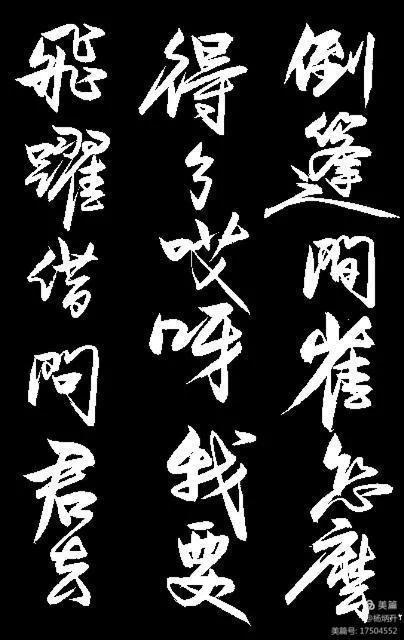 倒篷間雀怎麼
得了哎呀我要
飛躍借問君去
美篇
@杨炳升
美篇号: 17504552